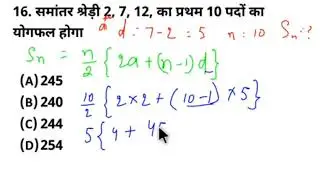 16. समांतर श्रेढ़ी 2, 7, 12, का प्रथम 10 पदों का
योगफल होगा a d ∴ 7-2 = 5 n = 10 Sn = ?
Sn = n/2 {2a + (n-1) d}
(A) 245
(B) 240 10/2 {2×2 + (10-1) × 5}
(C) 244
5 {4 + 45
(D) 254